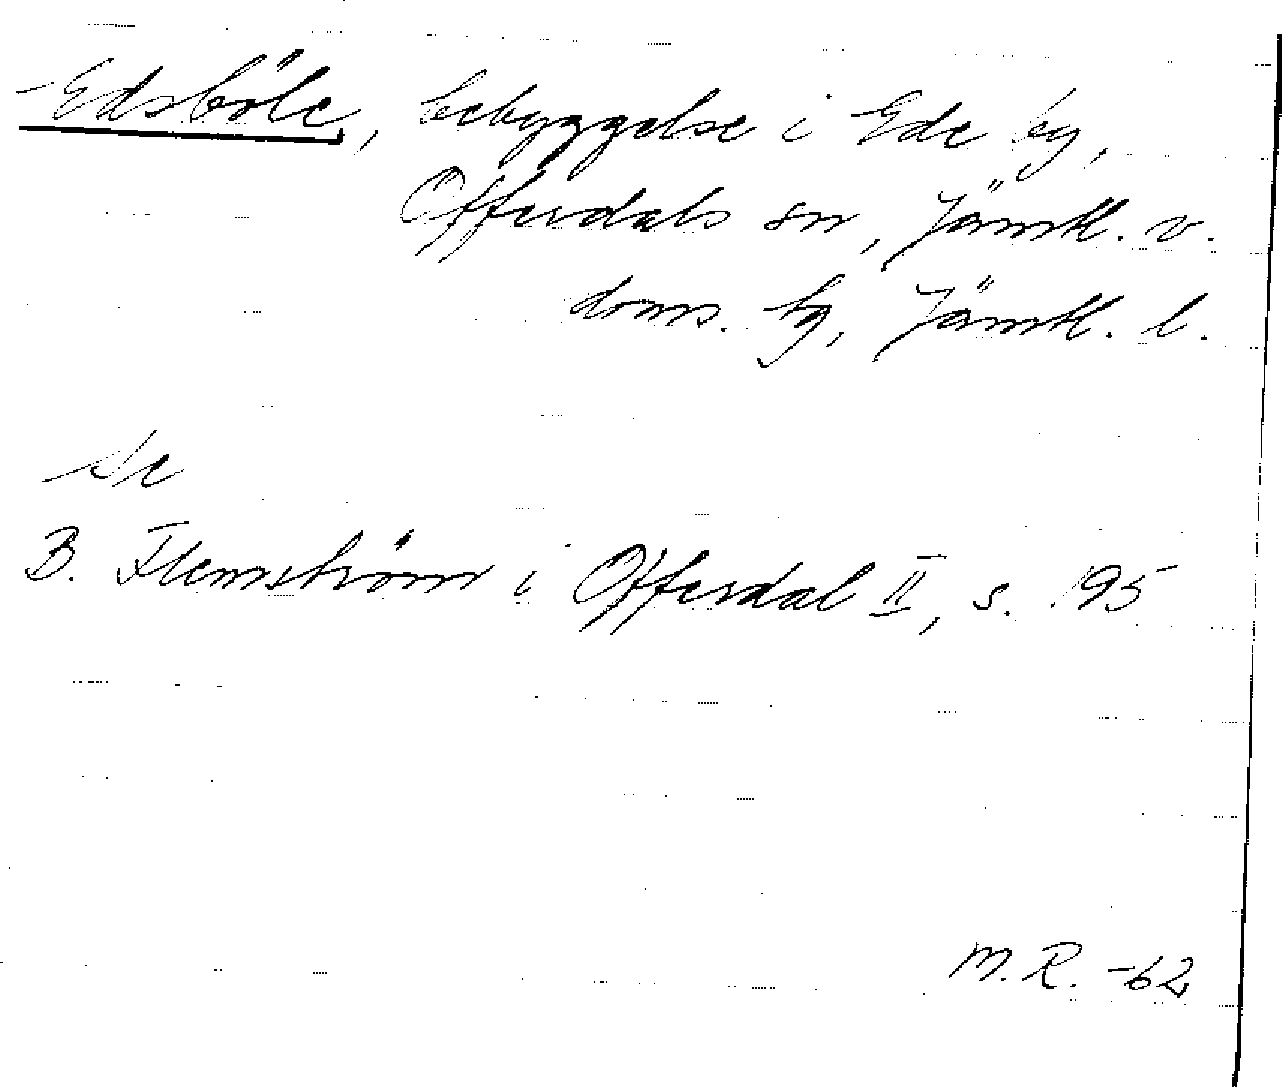 Edsböle, bebyggelse i Ede by,
Offerdals sn, Jämtl. v.
doms. hg, Jämtl. l.
Se
B. Flemström i Offerdal II, s. 195
M.R. -62